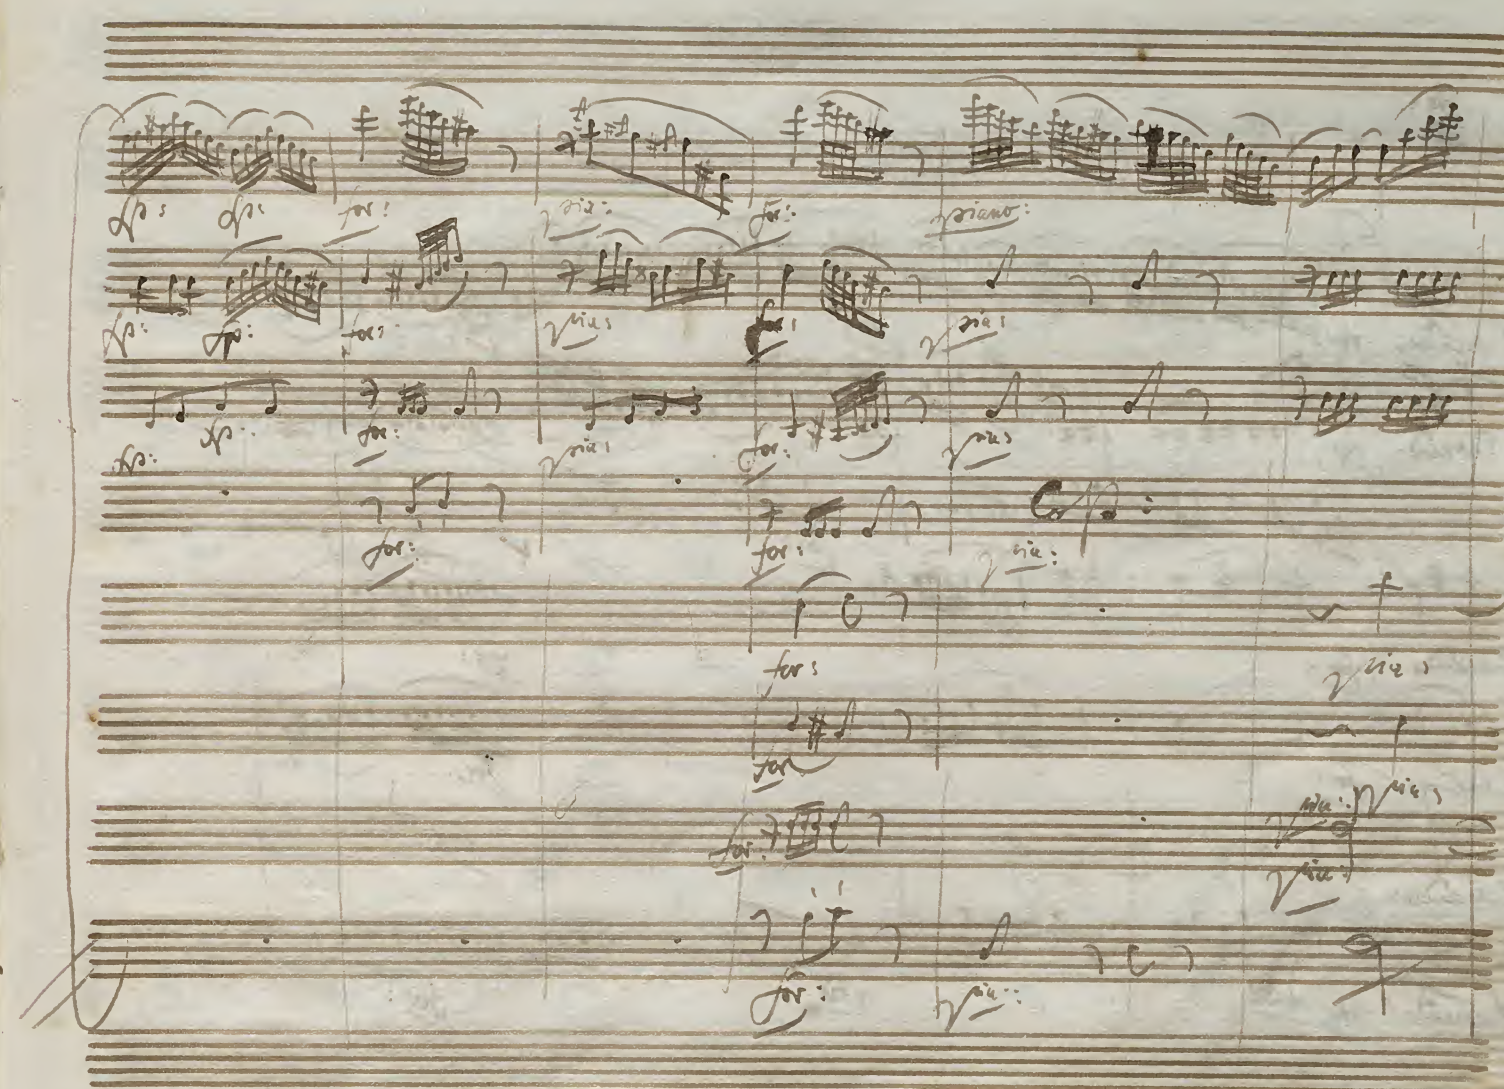 fp: fp: for: pia: for: piano:
fp: fp: for: pia: for: pia:
fp: fp: for: pia: for: pia:
for: for: pia:
for: pia:
for pia:
for: pia: pia:
for: pia: